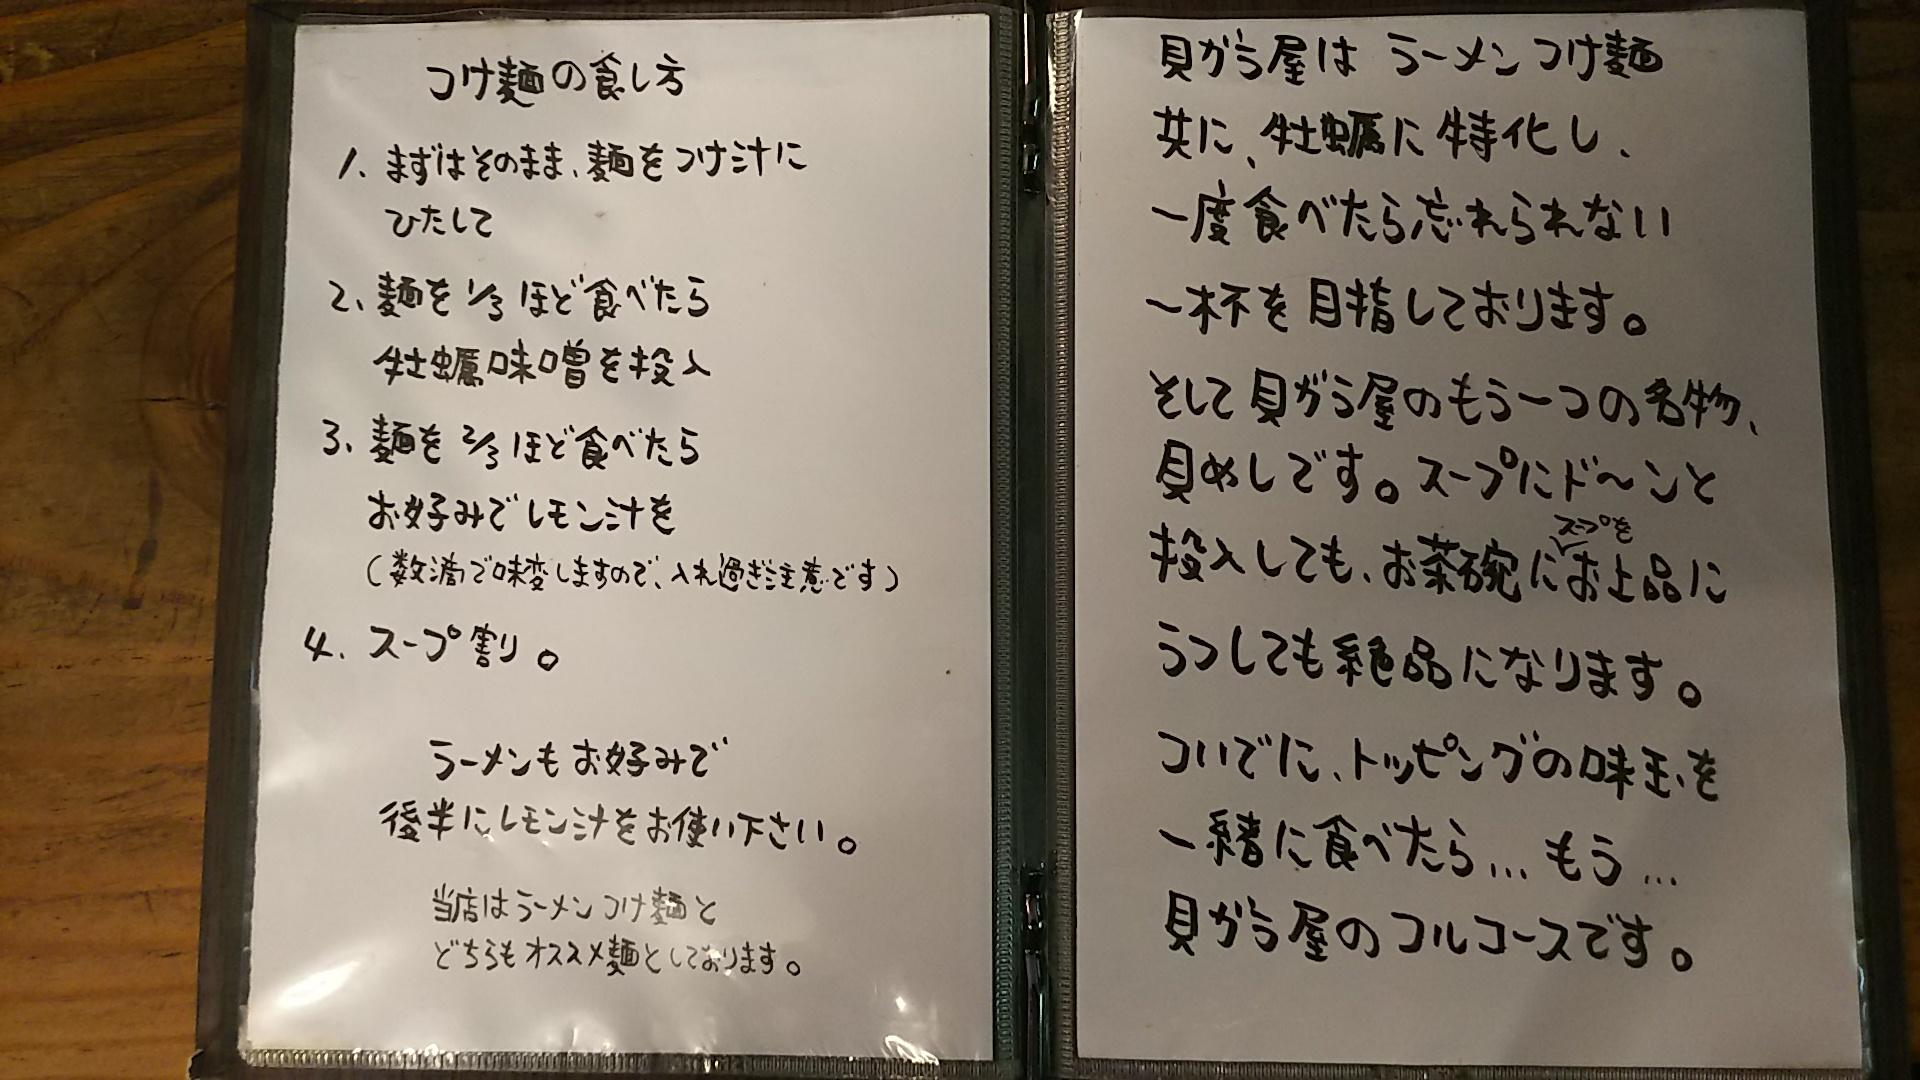 つけ麺の食し方
1. まずはそのまま、麺をつけ汁に
ひたして
2. 麺を1/3ほど食べたら
牡蠣味噌を投入
3. 麺を2/3ほど食べたら
お好みでレモン汁を
(数滴で味変しますので、入れ過ぎ注意です)
4. スープ割り。
ラーメンもお好みで
後半にレモン汁をお使い下さい。
当店はラーメンつけ麺と
どちらもオススメ麺としております。
貝がら屋は ラーメンつけ麺
共に、牡蠣に特化し、
一度食べたら忘れられない
一杯を目指しております。
そして貝がら屋のもう一つの名物、
貝めしです。スープにド〜ンと
スープを
投入しても、お茶碗にお上品に
うつしても絶品になります。
ついでに、トッピングの味玉を
一緒に食べたら...もう...
貝がら屋のコルコースです。